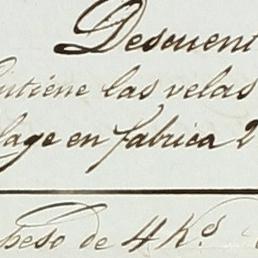 Descuent
ntiene las velas
lage en fabrica 2
peso de 4 Ks